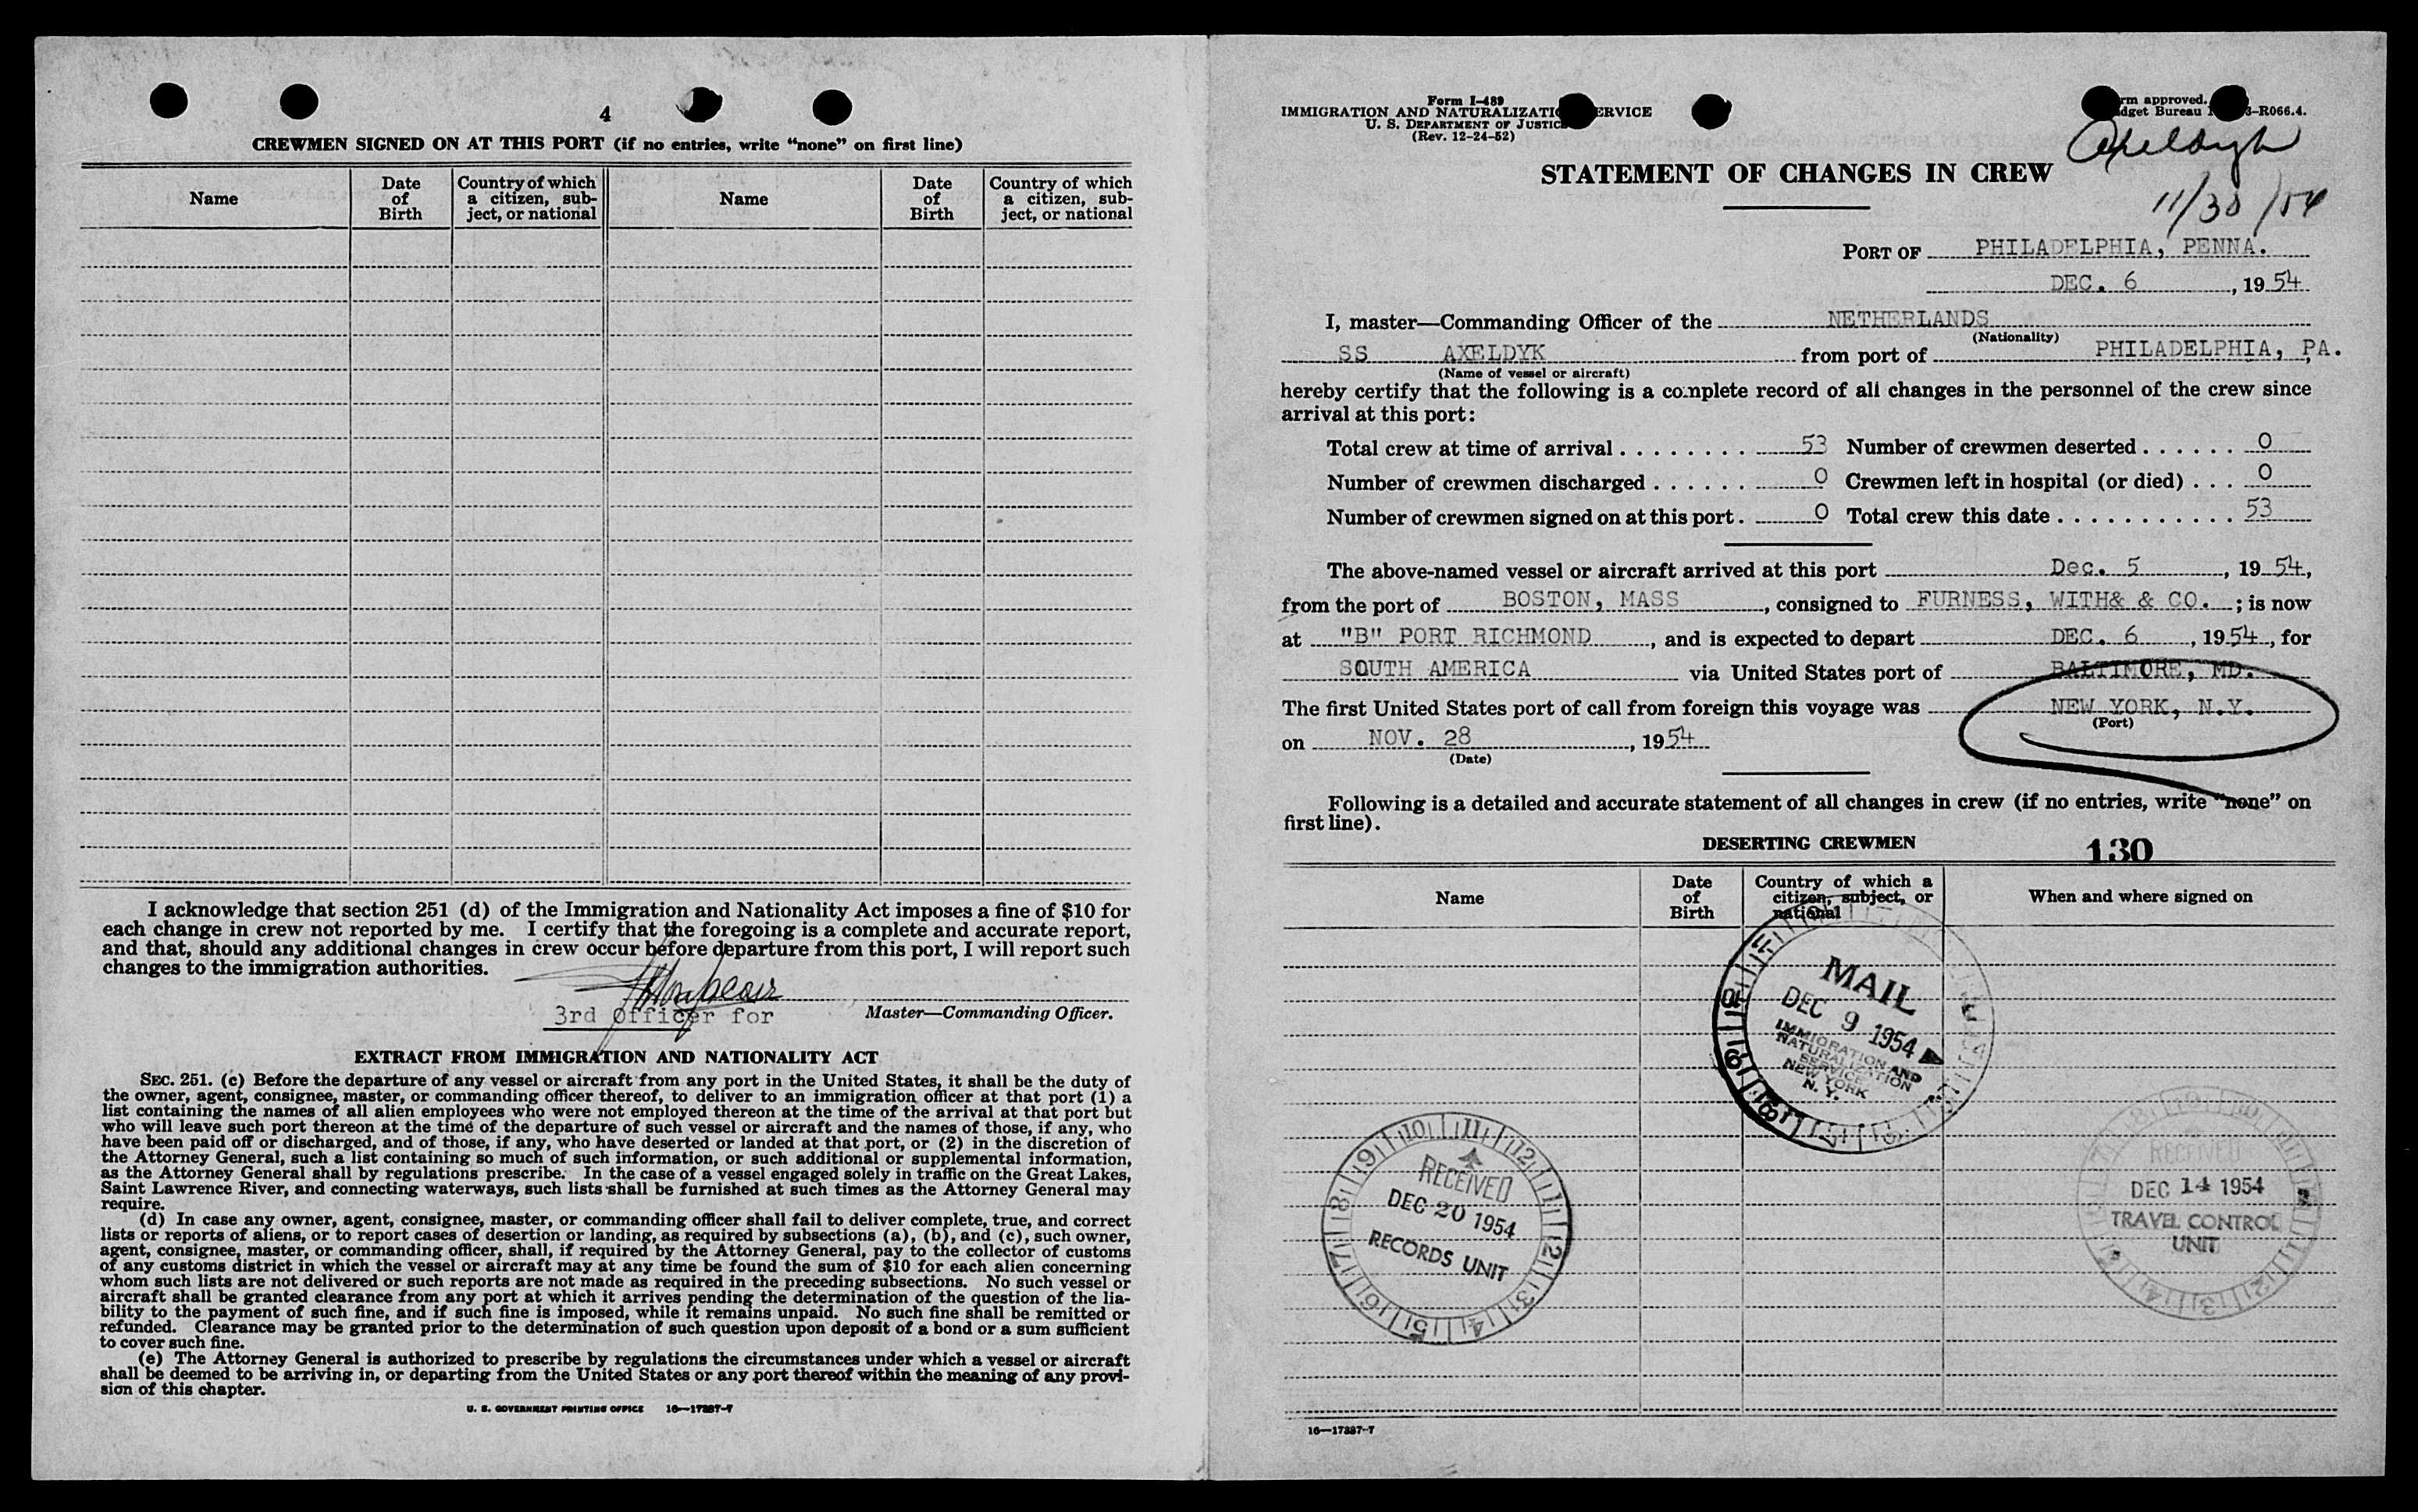 4
CREWMEN SIGNED ON AT THIS PORT (if no entries, write "none" on first line)
Name
Date of Birth
Country of which a citizen, subject, or national
Name
Date of Birth
Country of which a citizen, subject, or national
I acknowledge that section 251 (d) of the Immigration and Nationality Act imposes a fine of $10 for
each change in crew not reported by me. I certify that the foregoing is a complete and accurate report,
and that, should any additional changes in crew occur before departure from this port, I will report such
changes to the immigration authorities.
3rd Officer for Master—Commanding Officer.
EXTRACT FROM IMMIGRATION AND NATIONALITY ACT
SEC. 251. (c) Before the departure of any vessel or aircraft from any port in the United States, it shall be the duty of
the owner, agent, consignee, master, or commanding officer thereof, to deliver to an immigration officer at that port (1) a
list containing the names of all alien employees who were not employed thereon at the time of the arrival at that port but
who will leave such port thereon at the time of the departure of such vessel or aircraft and the names of those, if any, who
have been paid off or discharged, and of those, if any, who have deserted or landed at that port, or (2) in the discretion of
the Attorney General, such a list containing so much of such information, or such additional or supplemental information,
as the Attorney General shall by regulations prescribe. In the case of a vessel engaged solely in traffic on the Great Lakes,
Saint Lawrence River, and connecting waterways, such lists shall be furnished at such times as the Attorney General may
require.
(d) In case any owner, agent, consignee, master, or commanding officer shall fail to deliver complete, true, and correct
lists or reports of aliens, or to report cases of desertion or landing, as required by subsections (a), (b), and (c), such owner,
agent, consignee, master, or commanding officer, shall, if required by the Attorney General, pay to the collector of customs
of any customs district in which the vessel or aircraft may at any time be found the sum of $10 for each alien concerning
whom such lists are not delivered or such reports are not made as required in the preceding subsections. No such vessel or
aircraft shall be granted clearance from any port at which it arrives pending the determination of the question of the lia-
bility to the payment of such fine, and if such fine is imposed, while it remains unpaid. No such fine shall be remitted or
refunded. Clearance may be granted prior to the determination of such question upon deposit of a bond or a sum sufficient
to cover such fine.
(e) The Attorney General is authorized to prescribe by regulations the circumstances under which a vessel or aircraft
shall be deemed to be arriving in, or departing from the United States or any port thereof within the meaning of any provi-
sion of this chapter.
U. S. GOVERNMENT PRINTING OFFICE 16—17887-7
Form I-489
IMMIGRATION AND NATURALIZATIO ERVICE
U. S. DEPARTMENT OF JUSTIC
(Rev. 12-24-52)
rm approved.
dget Bureau -R066.4.
Axeldyk
11/30/54
STATEMENT OF CHANGES IN CREW
PORT OF PHILADELPHIA, PENNA.
DEC. 6, 1954
I, master—Commanding Officer of the NETHERLANDS
(Nationality)
SS AXELDYK from port of PHILADELPHIA, PA.
(Name of vessel or aircraft)
hereby certify that the following is a complete record of all changes in the personnel of the crew since
arrival at this port:
Total crew at time of arrival . . . . . . . . 53 Number of crewmen deserted . . . . . . 0
Number of crewmen discharged . . . . . . 0 Crewmen left in hospital (or died) . . . 0
Number of crewmen signed on at this port . 0 Total crew this date . . . . . . . . . . . 53
The above-named vessel or aircraft arrived at this port Dec. 5, 1954,
from the port of BOSTON, MASS, consigned to FURNESS, WITH& & CO. ; is now
at "B" PORT RICHMOND, and is expected to depart DEC. 6, 1954, for
SOUTH AMERICA via United States port of BALTIMORE, MD.
The first United States port of call from foreign this voyage was NEW YORK, N.Y.
(Port)
on NOV. 28, 1954
(Date)
Following is a detailed and accurate statement of all changes in crew (if no entries, write "none" on
first line).
DESERTING CREWMEN
130
Name
Date of Birth
Country of which a citizen, subject, or national
When and where signed on
MAIL
DEC 9 1954
IMMIGRATION AND
NATURALIZATION
SERVICE
NEW YORK
N. Y.
RECEIVED
DEC 20 1954
RECORDS UNIT
RECEIVED
DEC 14 1954
TRAVEL CONTROL
UNIT
16—17887-7